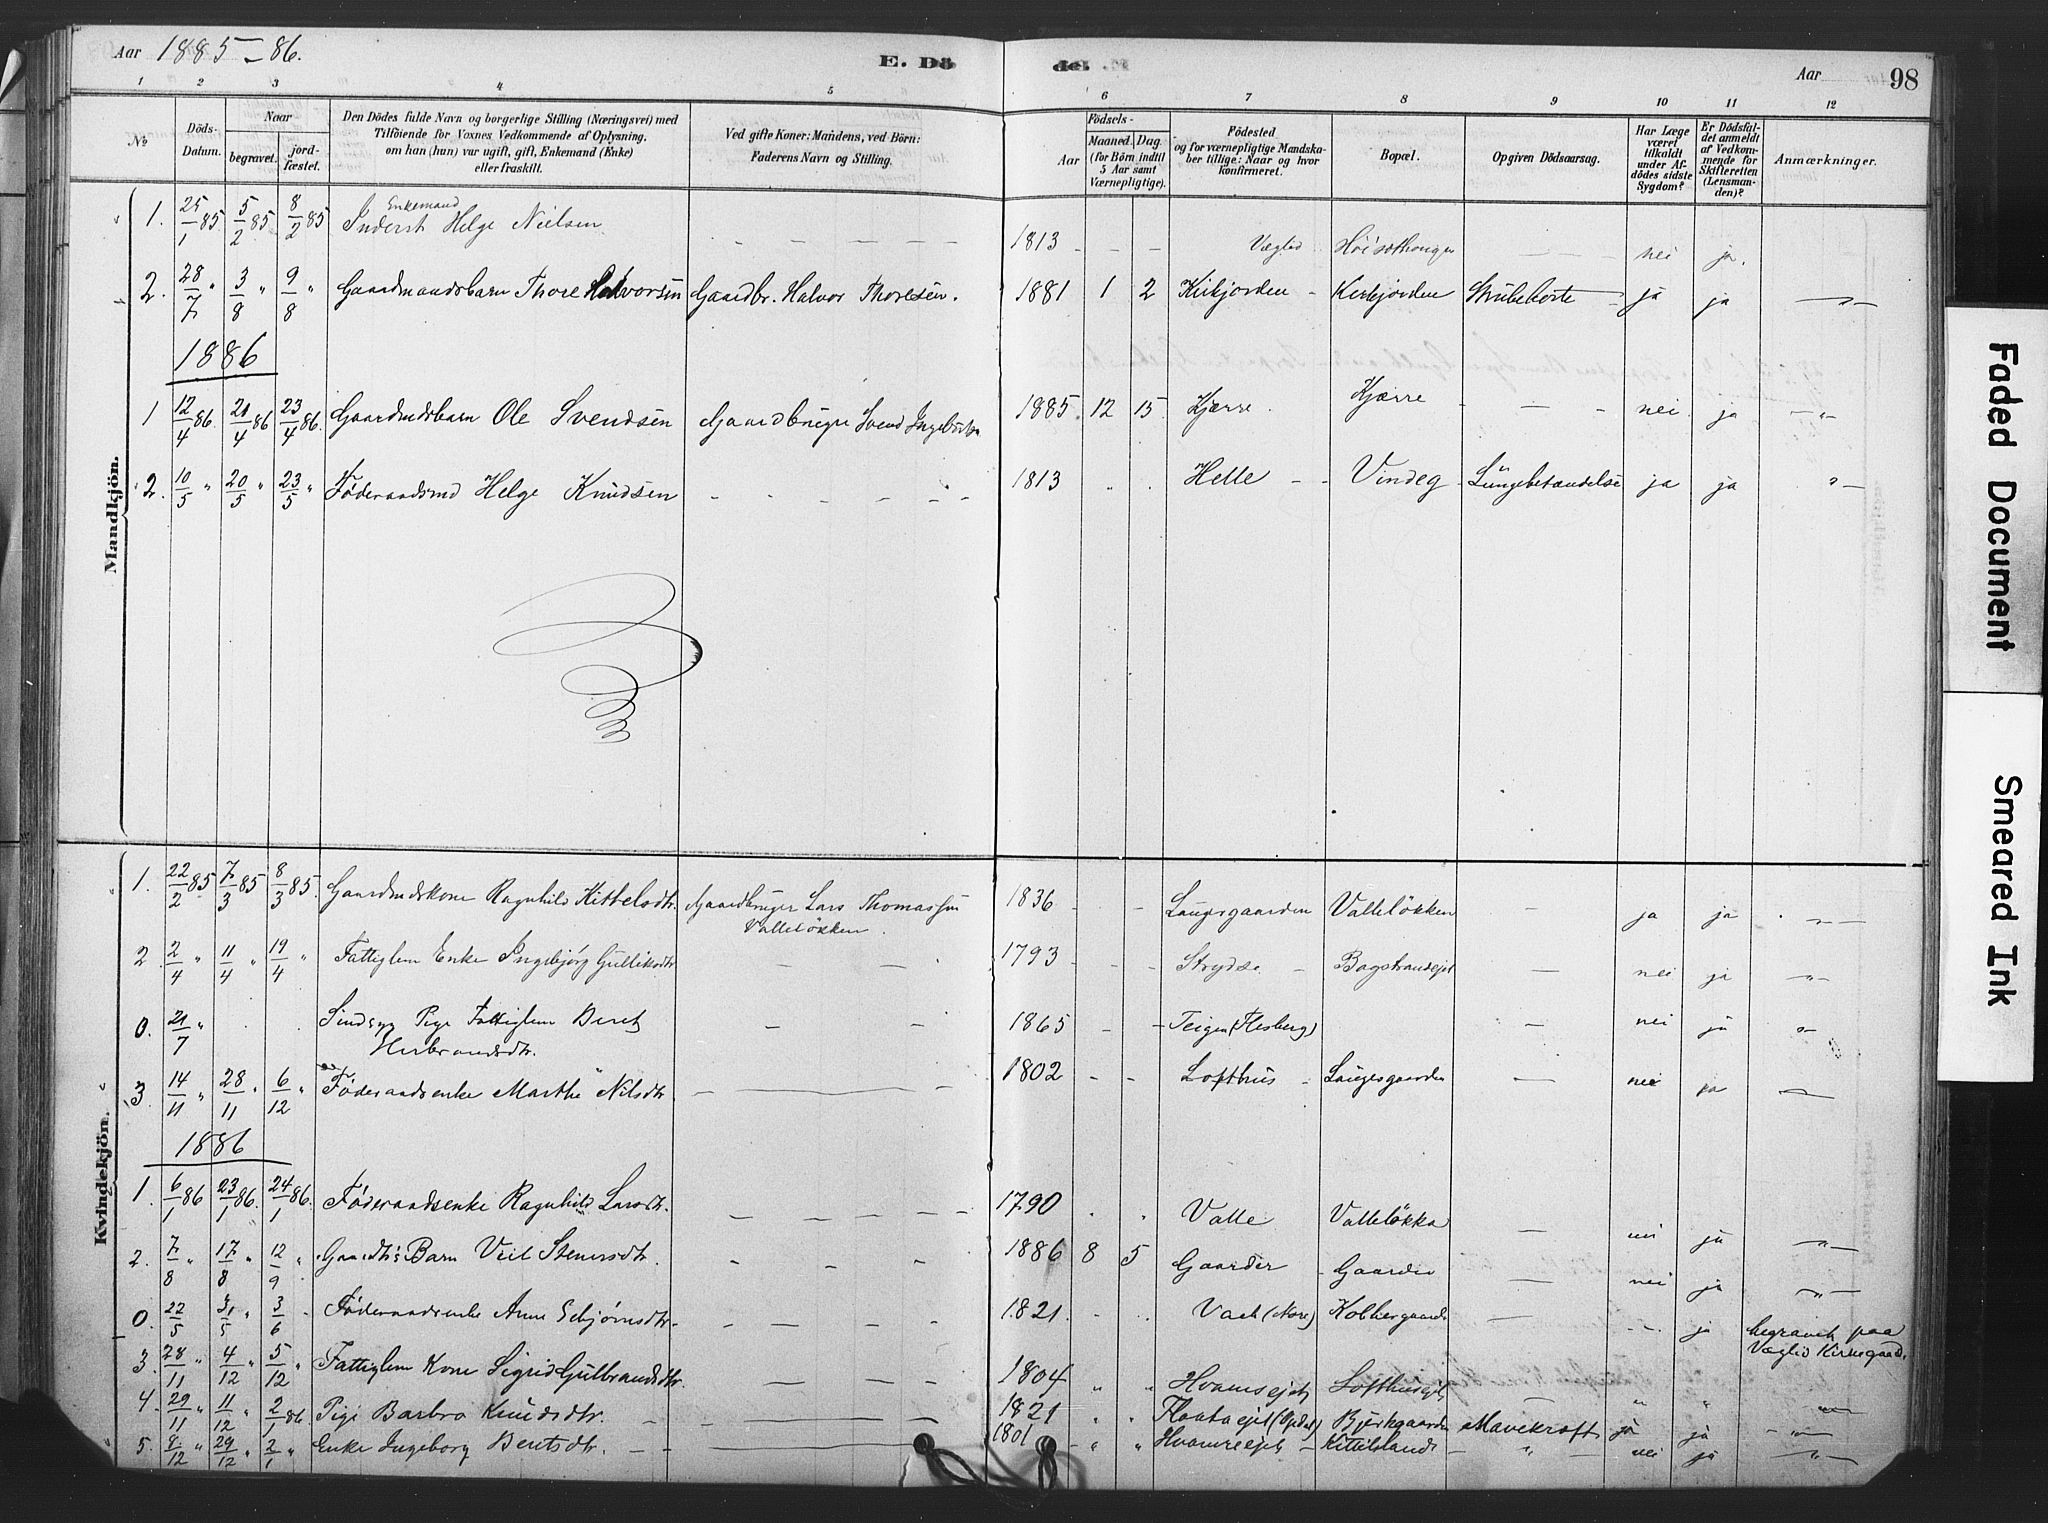 Aar 1885-86.
E. Dö de.
Aar 98
1 2 3 4 5 6 7 8 9 10 11 12
No
Döds-Datum.
Naar
begravet.
jord-fæstet.
Den Dödes fulde Navn og borgerlige Stilling (Næringsvei) med
Tilföiende for Voxnes Vedkommende af Oplysning,
om han (hun) var ugift, gift, Enkemand (Enke)
eller fraskilt.
Ved gifte Koner: Mandens, ved Börn:
Faderens Navn og Stilling.
Födsels-
Aar
Maaned. Dag.
(for Börn indtil
5 Aar samt
Værnepligtige).
Födested
og for værnepligtige Mandska-
ber tillige: Naar og hvor
konfirmeret.
Bopæl.
Opgiven Dödsaarsag.
Har Læge
været
tilkaldt
under Af-
dödes sidste
Sygdom?
Er Dödsfal-
det anmeldt
af Vedkom-
mende for
Skifteretten
(Lensman-
den)?
Anmærkninger.
Mandkjön.
Enkemand
1. 25/1 85 5/2 85 8/2 85 Inderst Helge Nielsen - - - - - 1813 - - - Vegli Höisæthougen - - nei ja.
2. 28/7 " 3/8 " 9/8 " Gaardmandsbarn Thore Halvorsen Gaardbr. Halvor Thoresen. 1881 1 2 Kirkjorden Kirkjorden Strubehoste ja ja -"-
1886
1 12/4 86. 21/4 86 23/4 86. Gaardmdsbarn Ole Svendsen Gaardbruger Svend 1885. 12 15. Kjærre. Kjærre - - - nei ja -"-
2. 10/5 " 20/5 " 23/5 " Föderaadsmd Helge Knudsen - - - - - 1813 " . Helle - - Vindeg Lungebetændelse ja ja "-
Kvindekjön.
1. 22/2 85 7/3 85 8/3 85 Gaardmdskone Ragnhild Kittelsdtr. Gaardbruger Lars Thomassen 1836 - - - Laugesgaarden Valleløkken - - ja ja -"-
Valleløkken.
2 2/4 " 11/4 " 19/4 " Fattiglem Enke Ingebjørg Gulliksdtr - - 1793 - - - Strydse - - nei ja "-
0. 21/7 " . . Sindsyg Pige Fattiglem Beret - - 1865 - - - Teigen (Flesberg) - nei ja "-
Herbrandsdtr.
3. 14/11 " 28/11 " 6/12 " Föderaadsenke Marthe Nilsdtr - - 1802 - - Lofthus - Laugesgaarden - nei ja -"-
1886
1. 6/1 86 23/1 86. 24/1 86. Föderaadsenke Ragnhild Larsdtr. - - - - - 1790 . . Valle Valleløkka - nei ja -"-
2. 7/8 " 17/8 " 12/9 " Gaardbrs Barn Veil Stenersdtr. - - - 1886 8 5 Gaarder - Gaarder - nei ja -"-
0. 22/5 " 31/5 " 3/6 - Föderaadsenke Anne Esbjørnsdtr. - - - - 1821. . . (Nore) - - ja begravet paa
Veglid Kirkegaard.
3. 28/11 " 4/12 " 5/12 " Fattiglem Kone Sigrid Gulbrandsdtr. - - - - 1804 " " Hvamsejet - " " -"-
4. 29/11 " 11/12 " 2/1 86. Pige Barbro Knudsdtr. - - 1821 " " (Opdal) Bjerkgaarden Mavekræft ja ja -"-
5. 8/12 " 29/12 " 2/1 " Enke Ingeborg Beritsdtr. - - 1801 - " " - - " nei ja -"-
Faded Document
Smeared Ink